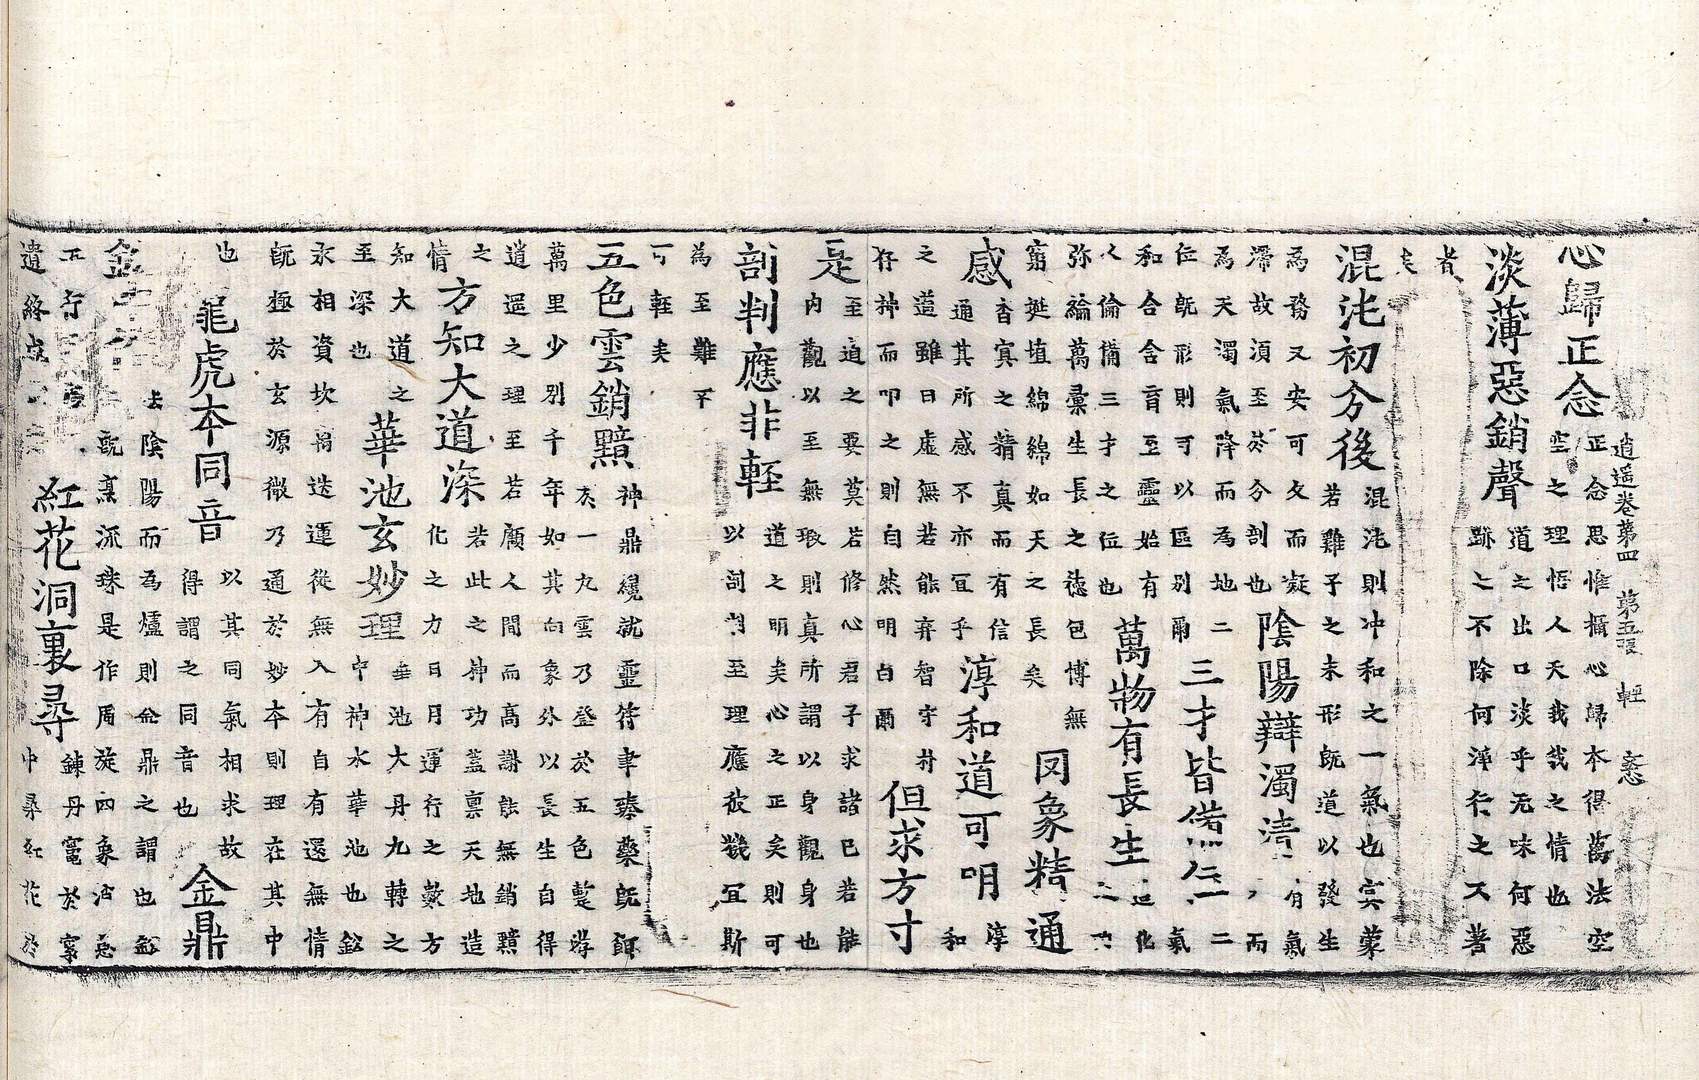 逍遥卷第四　第五張　輕
心歸正念　正念思惟攝心歸本得萬法空
空之理悟人天我我之情也
淡薄惡銷聲　道之出口淡乎无味何惡
跡之不除何滓行之不著
者
矣
混沌初分後　混沌則冲和之一氣也寞蒙
若雞子之未形既道以發生
為務又安可久而凝
滯故須至於分剖也　陰陽辯濁清　有氣
而
為天濁氣降而為地二
位既形則可以區別爾　三才皆俻　二
氣
和合含育至靈始有
人倫俻三才之位也　萬物有長生
化
弥綸萬彙生長之德包博無
窮埏埴綿綿如天之長矣　罔象精通
感　杳寞之精真而有信
通其所感不亦冝乎　淳和道可明　淳
和
之蓋雖曰虛無若能弃智守朴
存神而叩之則自然明白爾　但求方寸
是　至道之要莫若修心君子求諸已若能
內觀以至無瑕則真所謂以身觀身也
剖判應非輕　道之明矣心之正矣則可
以剖判至理應彼幾冝斯
為至難乎
可輕矣
五色雲銷黯　神鼎纔就靈符聿臻藥既餌
一九雲乃登於五色蹔游
萬里少別千年如其向象外以長生自得
逍遥之理至若顧人間而高謝能無銷黯
之
情　方知大道深　若此之神功蓋稟天地造
化之力日月運行之數方
知大道之
至深也　華池玄妙理　華池大丹九轉之
中神水華池也鈆
汞相資坎离迭運從無入有自有還無情
既極於玄源微乃通於妙本則理在其中
也
龜虎本同音　以其同氣相求故
得謂之同音也　金鼎
去陰陽而為爐則金鼎之謂也鈆
既烹流珠是作周旋四象
紅花洞裏尋　鍊丹竈於
中尋紅花於